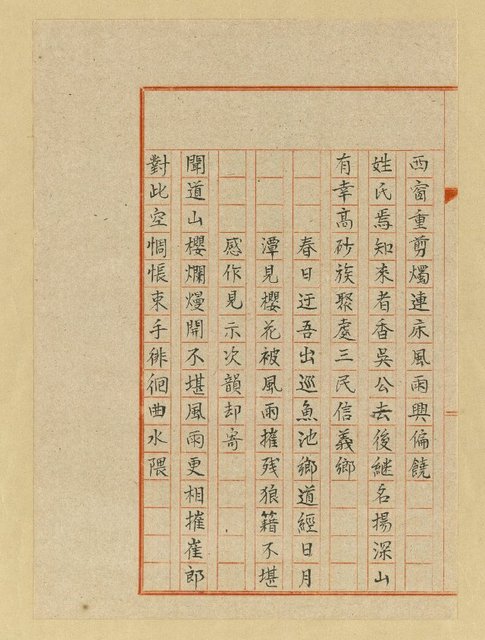 西窗重剪燭連床風雨興偏饒
姓氏焉知來者香吳公去後継名揚深山
有幸高砂族聚處三民信義鄉
春日迂吾出巡魚池鄉道經日月
潭見櫻花被風雨摧残狼籍不堪
感作見示次韻却寄
聞道山櫻爛熳開不堪風雨更相摧崔郎
對此空惆悵束手徘徊曲水隈